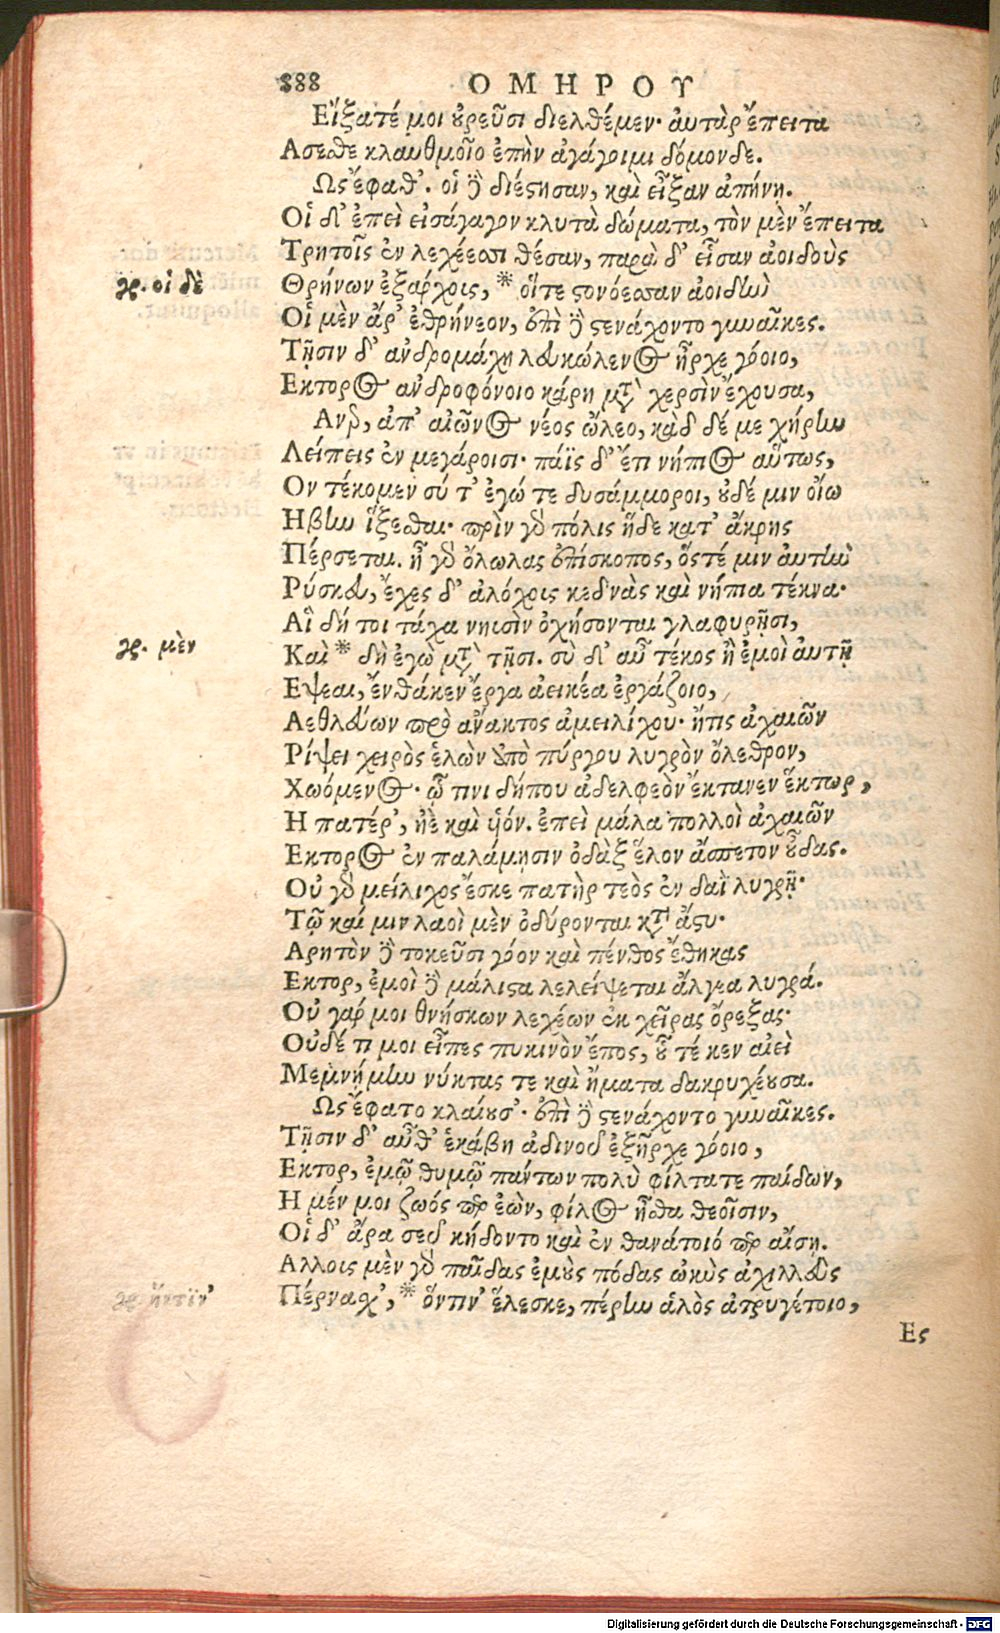 888 ΟΜΗΡΟΥ
Εἴξατέ μοι οὐρεῦσι διελθέμεν· ἀυτὰρ ἔπειτα
Ασεσθε κλαυθμοῖο ἐπὴν ἀγάγωμι δόμονδε.
Ως ἔφαθ'. οἱ δὲ διέστησαν, καὶ εἶξαν ἀπήνῃ.
Οἱ δ' ἐπεὶ εἰσάγαγον κλυτὰ δώματα, τὸν μὲν ἔπειτα
Τρητοῖς ἐν λεχέεσσι θέσαν, παρὰ δ' εἷσαν ἀοιδοὺς
γρ. οἱ δὲ
Θρήνων ἐξάρχοις, * οἵτε στονόεσσαν ἀοιδὴν
Οἱ μὲν ἄρ' ἐθρήνεον, ἐπὶ δὲ στενάχοντο γυναῖκες.
Τῇσιν δ' ἀνδρομάχη λευκώλενος ἦρχε γόοιο,
Εκτορος ἀνδροφόνοιο κάρη μετὰ χερσὶν ἔχουσα,
Ανερ, ἀπ' αἰῶνος νέος ὤλεο, κὰδ δέ με χήρην
Λείπεις ἐν μεγάροισι· πάϊς δ' ἔτι νήπιος αὕτως,
Ον τέκομεν σύ τ' ἐγώ τε δυσάμμοροι, οὐδέ μιν οἴω
Ηβην ἵξεσθαι· πρὶν γὰρ πόλις ἥδε κατ' ἄκρης
Πέρσεται. ἦ γὰρ ὄλωλας ἐπίσκοπος, ὅστέ μιν ἀυτὴν
Ρύσκευ, ἔχες δ' ἀλόχοις κεδνὰς καὶ νήπια τέκνα·
Αἳ δή τοι τάχα νηυσὶν ὀχήσονται γλαφυρῇσι,
γρ. μὲν
Καὶ * δὴ ἐγὼ μετὰ τῇσι. σὺ δ' αὖ τέκος ἢ ἐμοὶ ἀυτῇ
Εψεαι, ἔνθά κεν ἔργα ἀεικέα ἐργάζοιο,
Αεθλεύων πρὸ ἄνακτος ἀμειλίχου· ἤτις ἀχαιῶν
Ρίψει χειρὸς ἑλὼν ἀπὸ πύργου λυγρὸν ὄλεθρον,
Χωόμενος· ᾧ τινι δήπου ἀδελφεὸν ἔκτανεν ἕκτωρ,
Η πατέρ', ἠὲ καὶ υἱόν. ἐπεὶ μάλα πολλοὶ ἀχαιῶν
Εκτορος ἐν παλάμῃσιν ὀδὰξ ἕλον ἄσπετον οὖδας.
Οὐ γὰρ μείλιχος ἔσκε πατὴρ τεὸς ἐν δαῒ λυγρῇ·
Τῷ καί μιν λαοὶ μὲν ὀδύρονται κατὰ ἄστυ·
Αρητὸν δὲ τοκεῦσι γόον καὶ πένθος ἔθηκας
Εκτορ, ἐμοὶ δὲ μάλιστα λελείψεται ἄλγεα λυγρά.
Οὐ γάρ μοι θνήσκων λεχέων ἐκ χεῖρας ὄρεξας·
Οὐδέ τι μοι εἶπες πυκινὸν ἔπος, οὗ τέ κεν αἰεὶ
Μεμνήμην νύκτας τε καὶ ἤματα δακρυχέουσα.
Ως ἔφατο κλαίουσ'· ἐπὶ δὲ στενάχοντο γυναῖκες.
Τῇσιν δ' αὖθ' ἑκάβη ἀδινοῦ ἐξῆρχε γόοιο,
Εκτορ, ἐμῷ θυμῷ πάντων πολὺ φίλτατε παίδων,
Η μέν μοι ζωός περ ἐὼν, φίλος ἦσθα θεοῖσιν,
Οἱ δ' ἄρα σεῦ κήδοντο καὶ ἐν θανάτοιό περ αἴσῃ.
Αλλοις μὲν γὰρ παῖδας ἐμοὺς πόδας ὠκὺς ἀχιλλεὺς
γρ. ἥντιν'
Πέρναχ', * ὅντιν' ἕλεσκε, πέρην ἁλὸς ἀτρυγέτοιο,
Ες
Digitalisierung gefördert durch die Deutsche Forschungsgemeinschaft - DFG